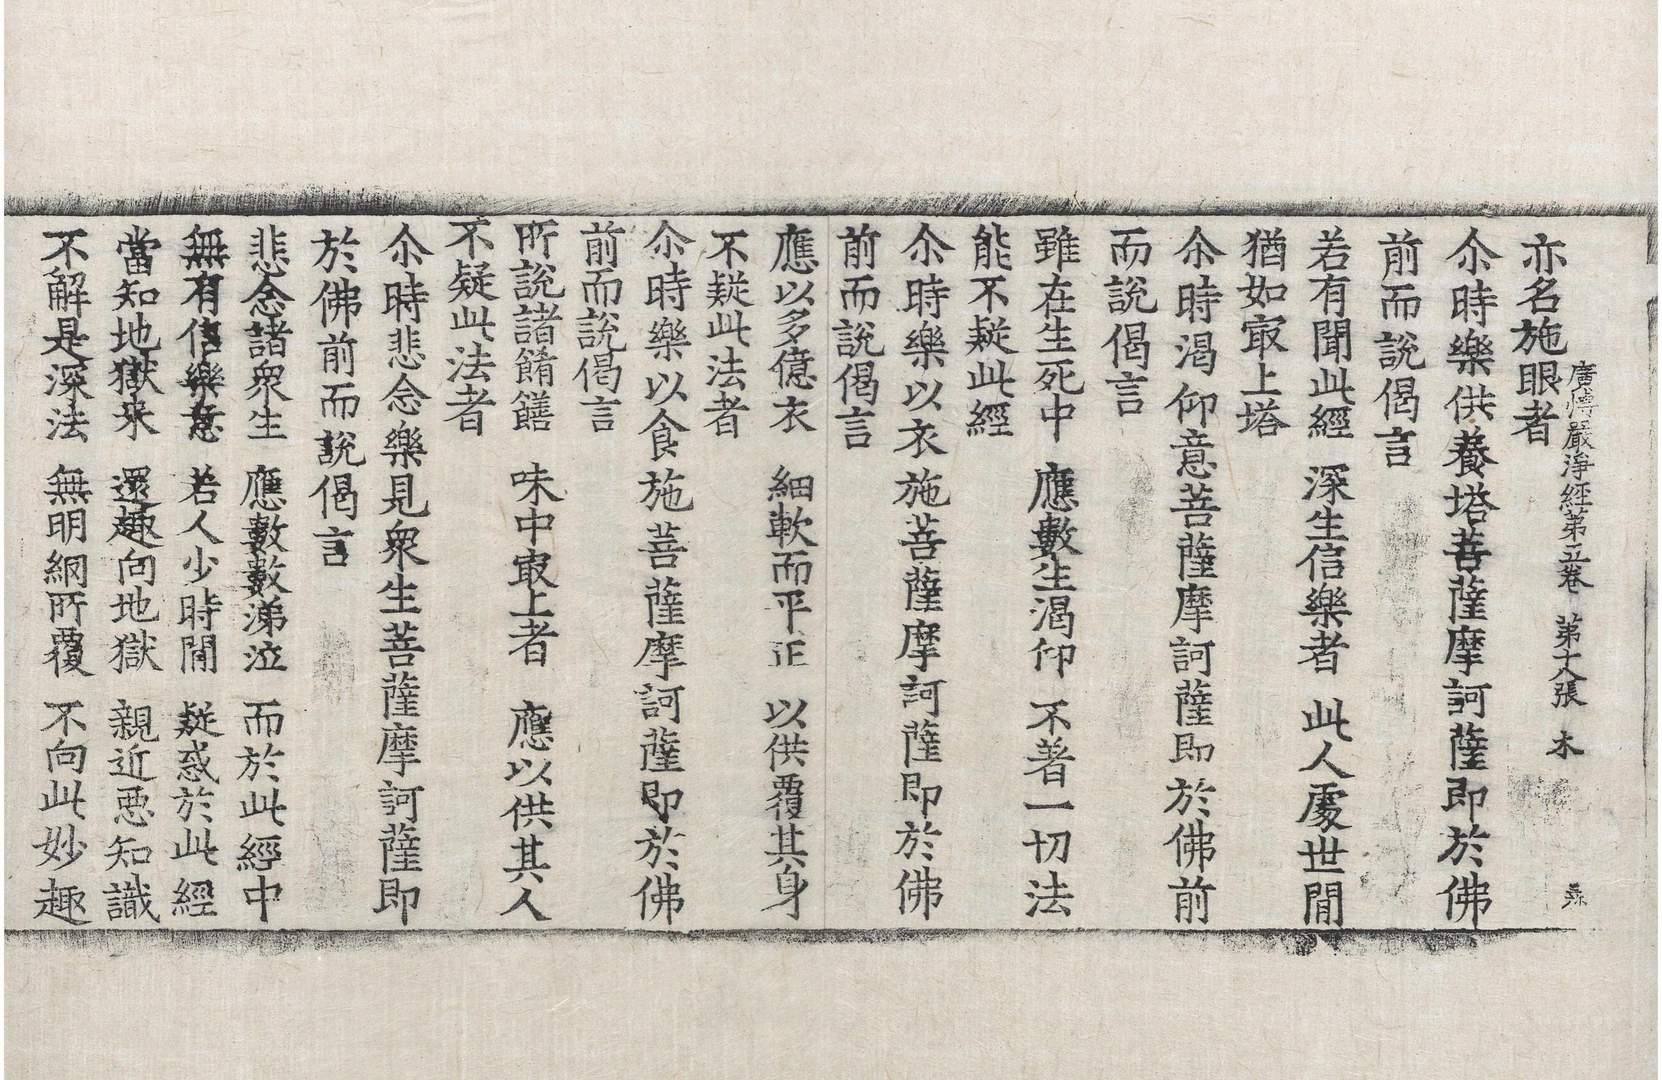 廣愽嚴淨經第五卷 第十八張 木
亦名施眼者
尒時樂供養塔菩薩摩訶薩即於佛
前而說偈言
若有聞此經 深生信樂者 此人處世間
猶如㝡上塔
尒時渴仰意菩薩摩訶薩即於佛前
而說偈言
雖在生死中 應數生渴仰 不著一切法
能不疑此經
尒時樂以衣施菩薩摩訶薩即於佛
前而說偈言
應以多億衣 細軟而平正 以供覆其身
不疑此法者
尒時樂以食施菩薩摩訶薩即於佛
前而說偈言
所說諸餚饍 味中㝡上者 應以供其人
不疑此法者
尒時悲念樂見衆生菩薩摩訶薩即
於佛前而說偈言
悲念諸衆生 應數數涕泣 而於此經中
無有信樂意 若人少時聞 疑惑於此經
當知地獄來 還趣向地獄 親近惡知識
不解是深法 無明網所覆 不向此妙趣